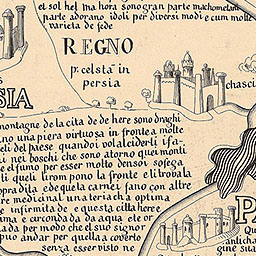 el sol hel ma hora sono gran parte machometani
parte adorano idoli per diversi modi e cum molte
varieta de fede
REGNO
celsta in
persia
chasci
SIA
montagne de la cita de de here sono draghi
no una piera virtuosa in fronte a molte
eli del paese quando i vol alciderli i fa
nei boschi che sono atorno quei monti
e el fumo per esser molto densoi sofega
li quel i trom pono la fronte e li trova la
opra dita e de quela carne i fano con altre
re medicinal una teriacha optima
e infirmita de e questa citta here
ma e circondada da aqua ete or
lada per modo che el suo signor
puo andar per quella a coverto
senza esser visto ne
PA
Que
antichа
gine sua